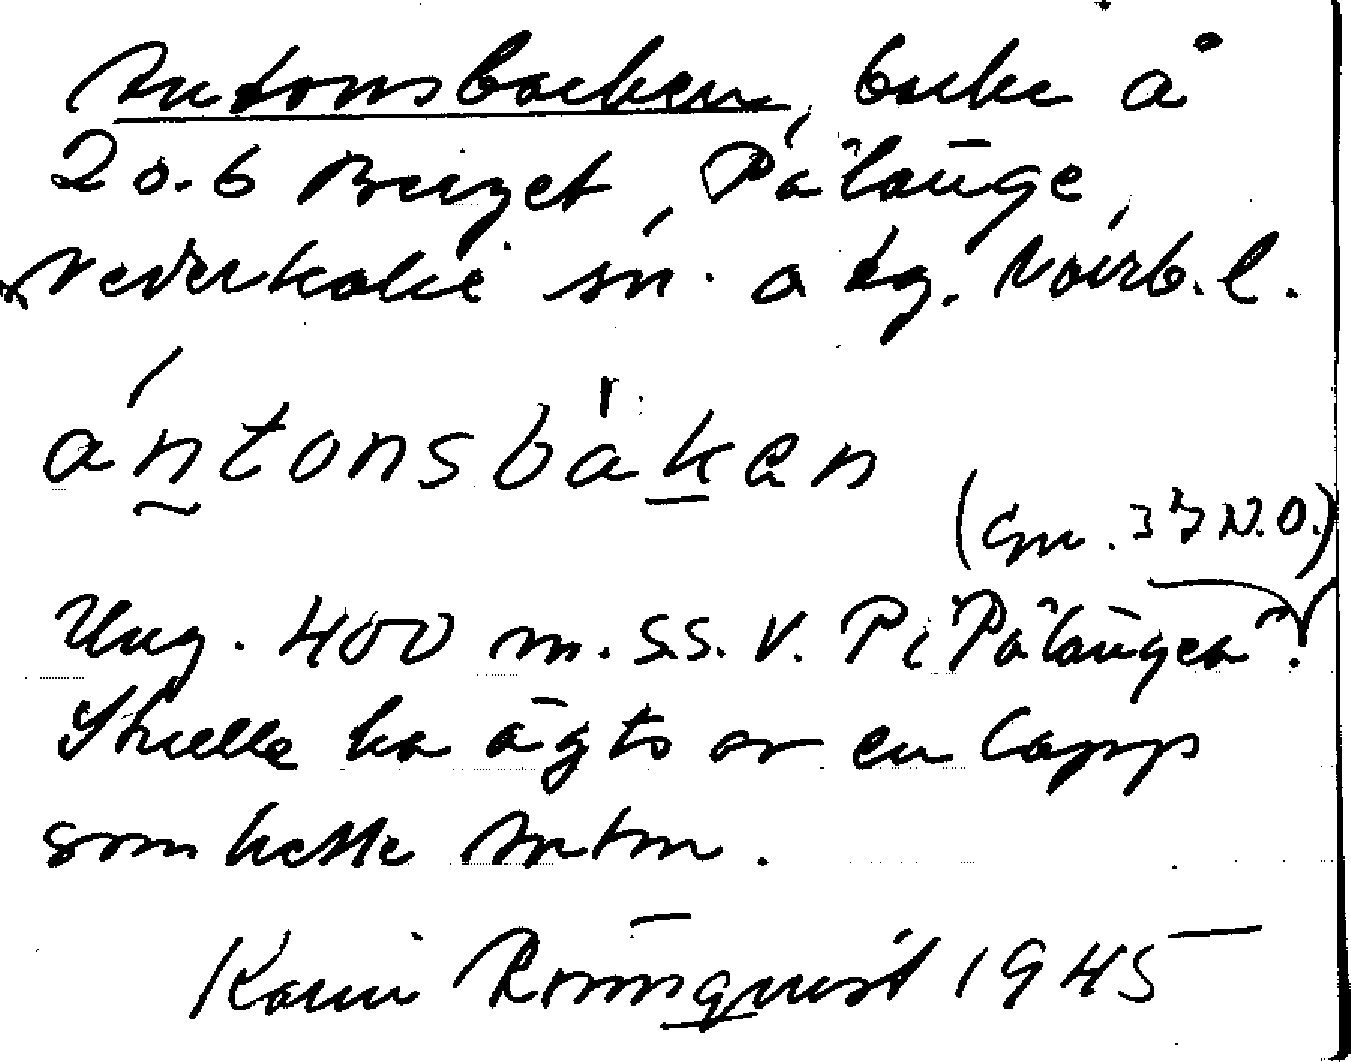 Antonsbacken, backe å
20.6 Berget, Pålänge,
Nederkalix sn. o tg. Norrb. l.
ántonsbàkən
(Gm. 35 N.O.)
Ung. 400 m. S.S.V. P i "Pålängea".
Skulle ha ägts av en lapp
som hette Anton.
Karin Rönnqvist 1945